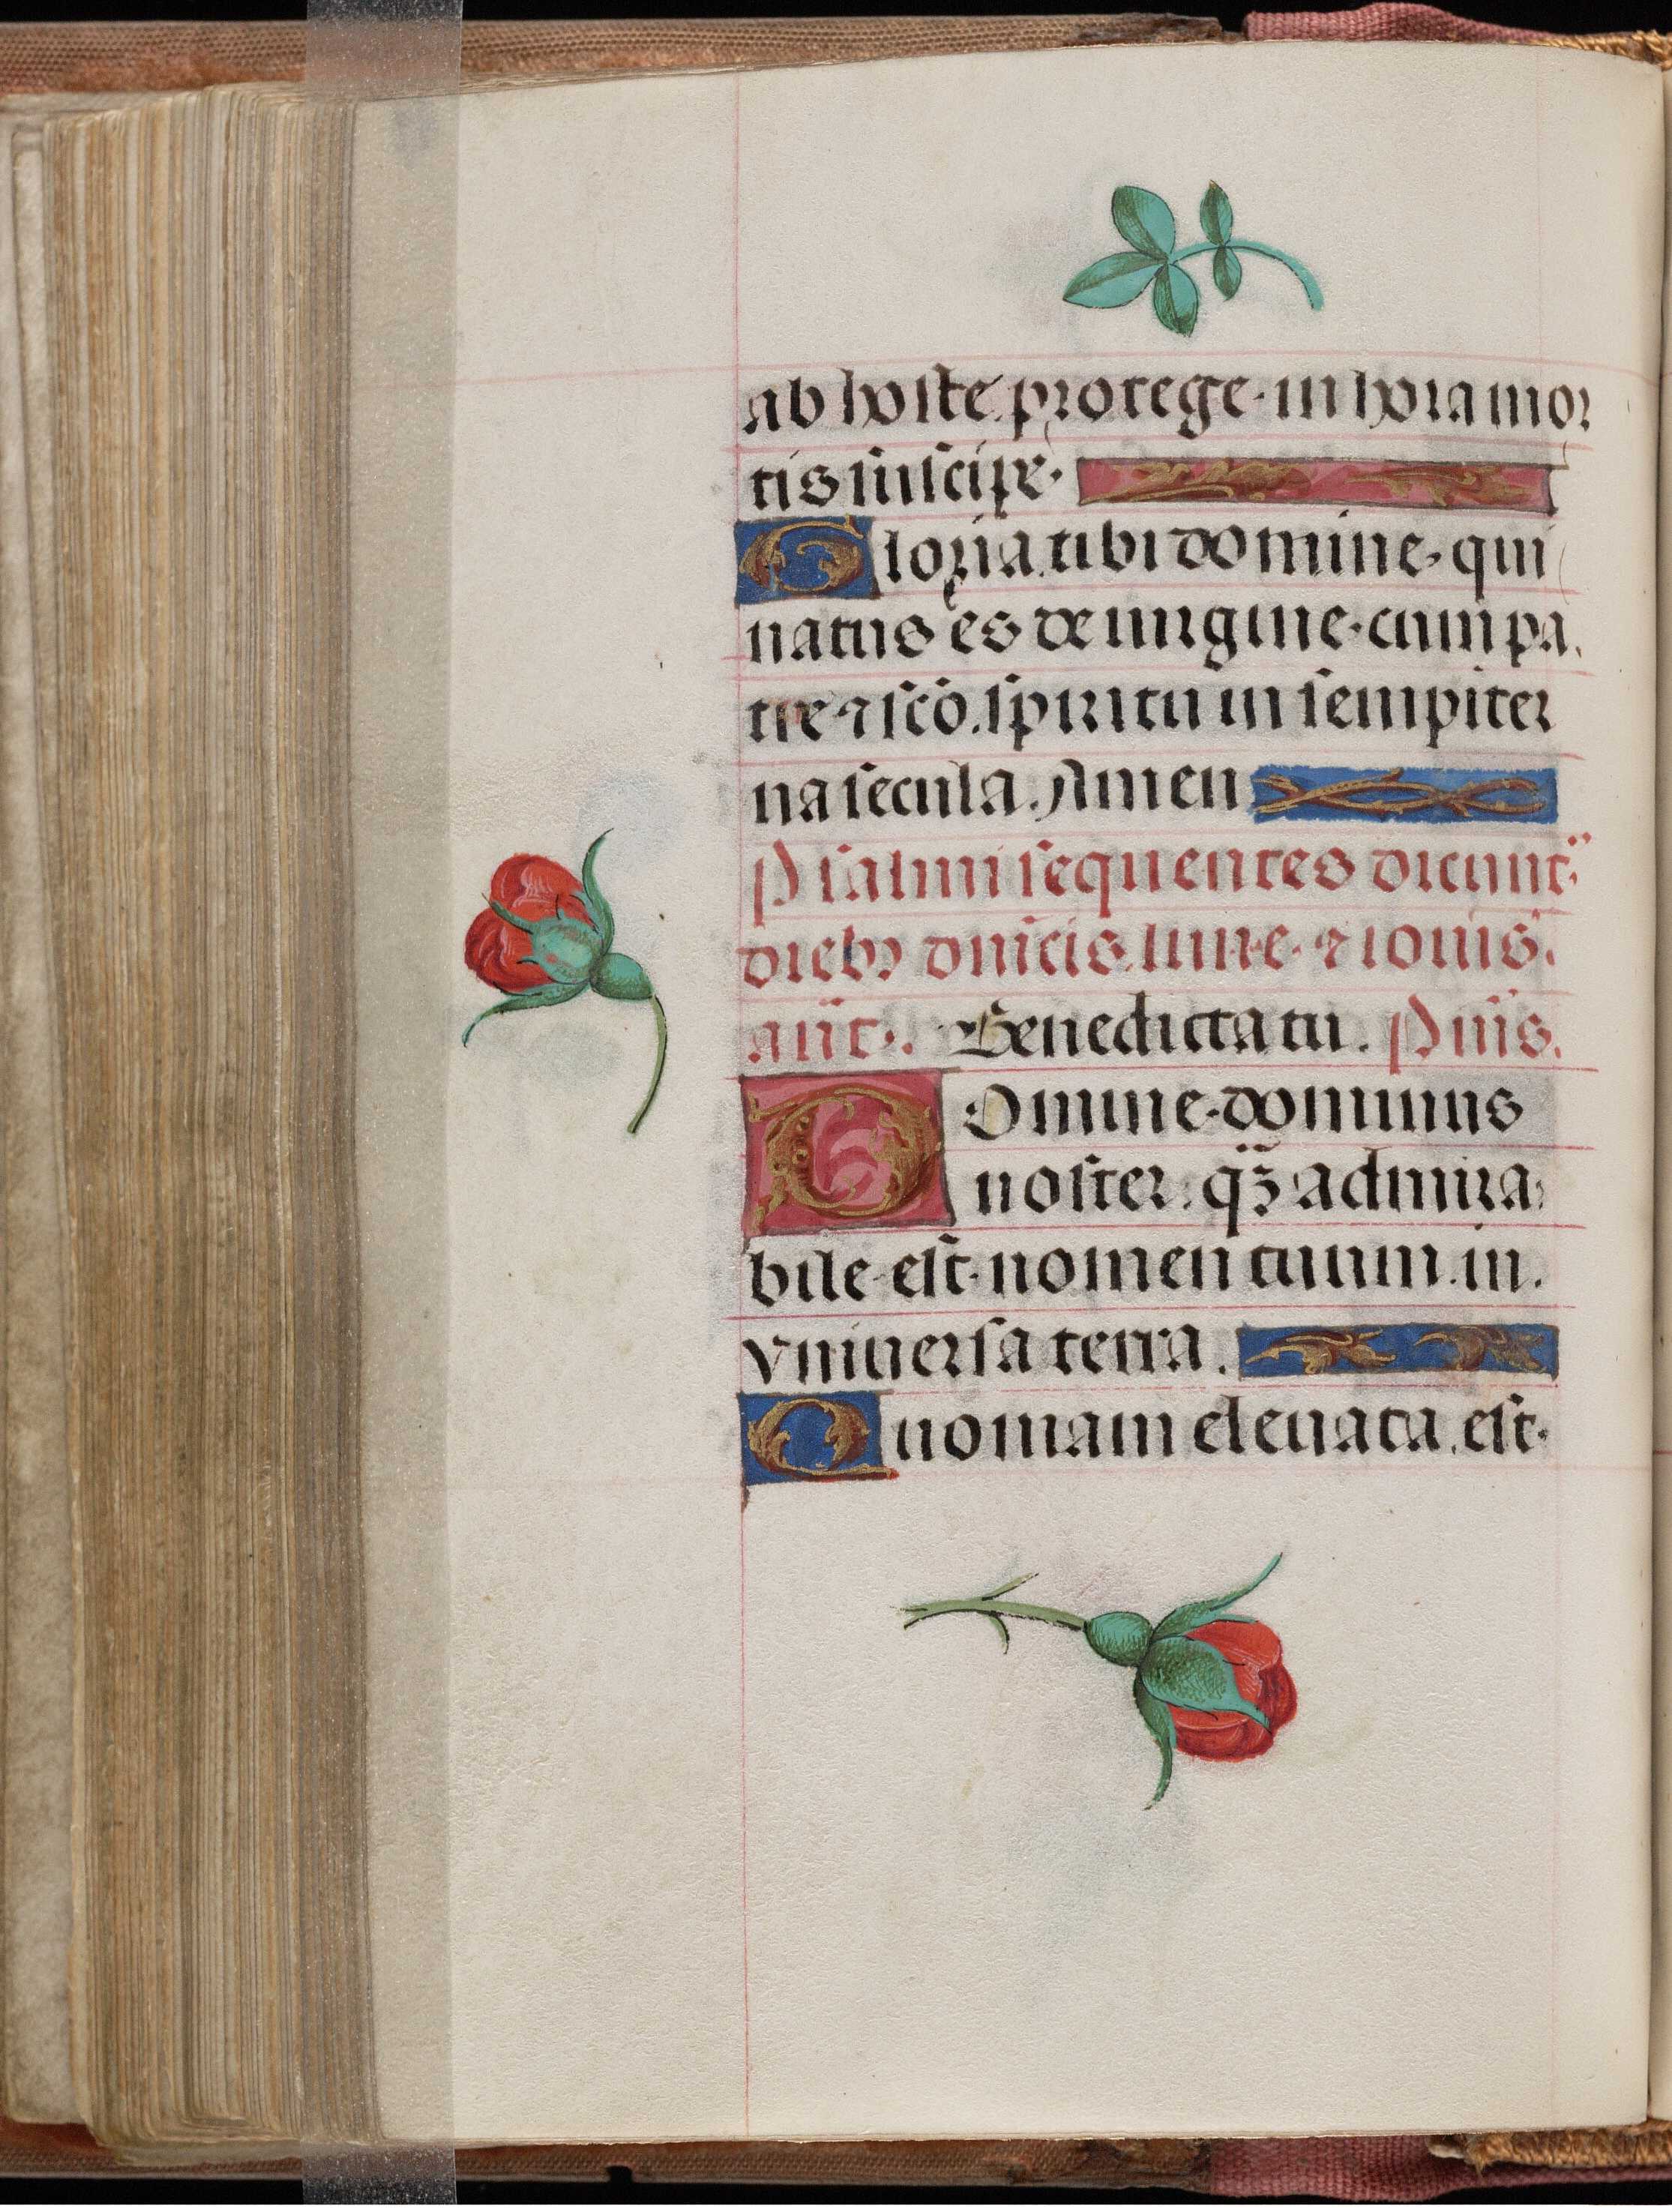 ab hoste protege. in hora mor
tis suscipe.
Gloria tibi domine. qui
natus es de uirgine. cum pa
tre ⁊ sc̄o. spiritu in sempiter
na secula. Amen
Psalmi sequentes dicunt᷑
diebꝰ dn̄icis. lune. ⁊ iouis.
an̄t. Benedicta tu. Psūs.
Domine. dominus
noster. qꝫ̄ admira
bile. est. nomen tuum. in.
vniuersa terra.
Quoniam eleuata. est.